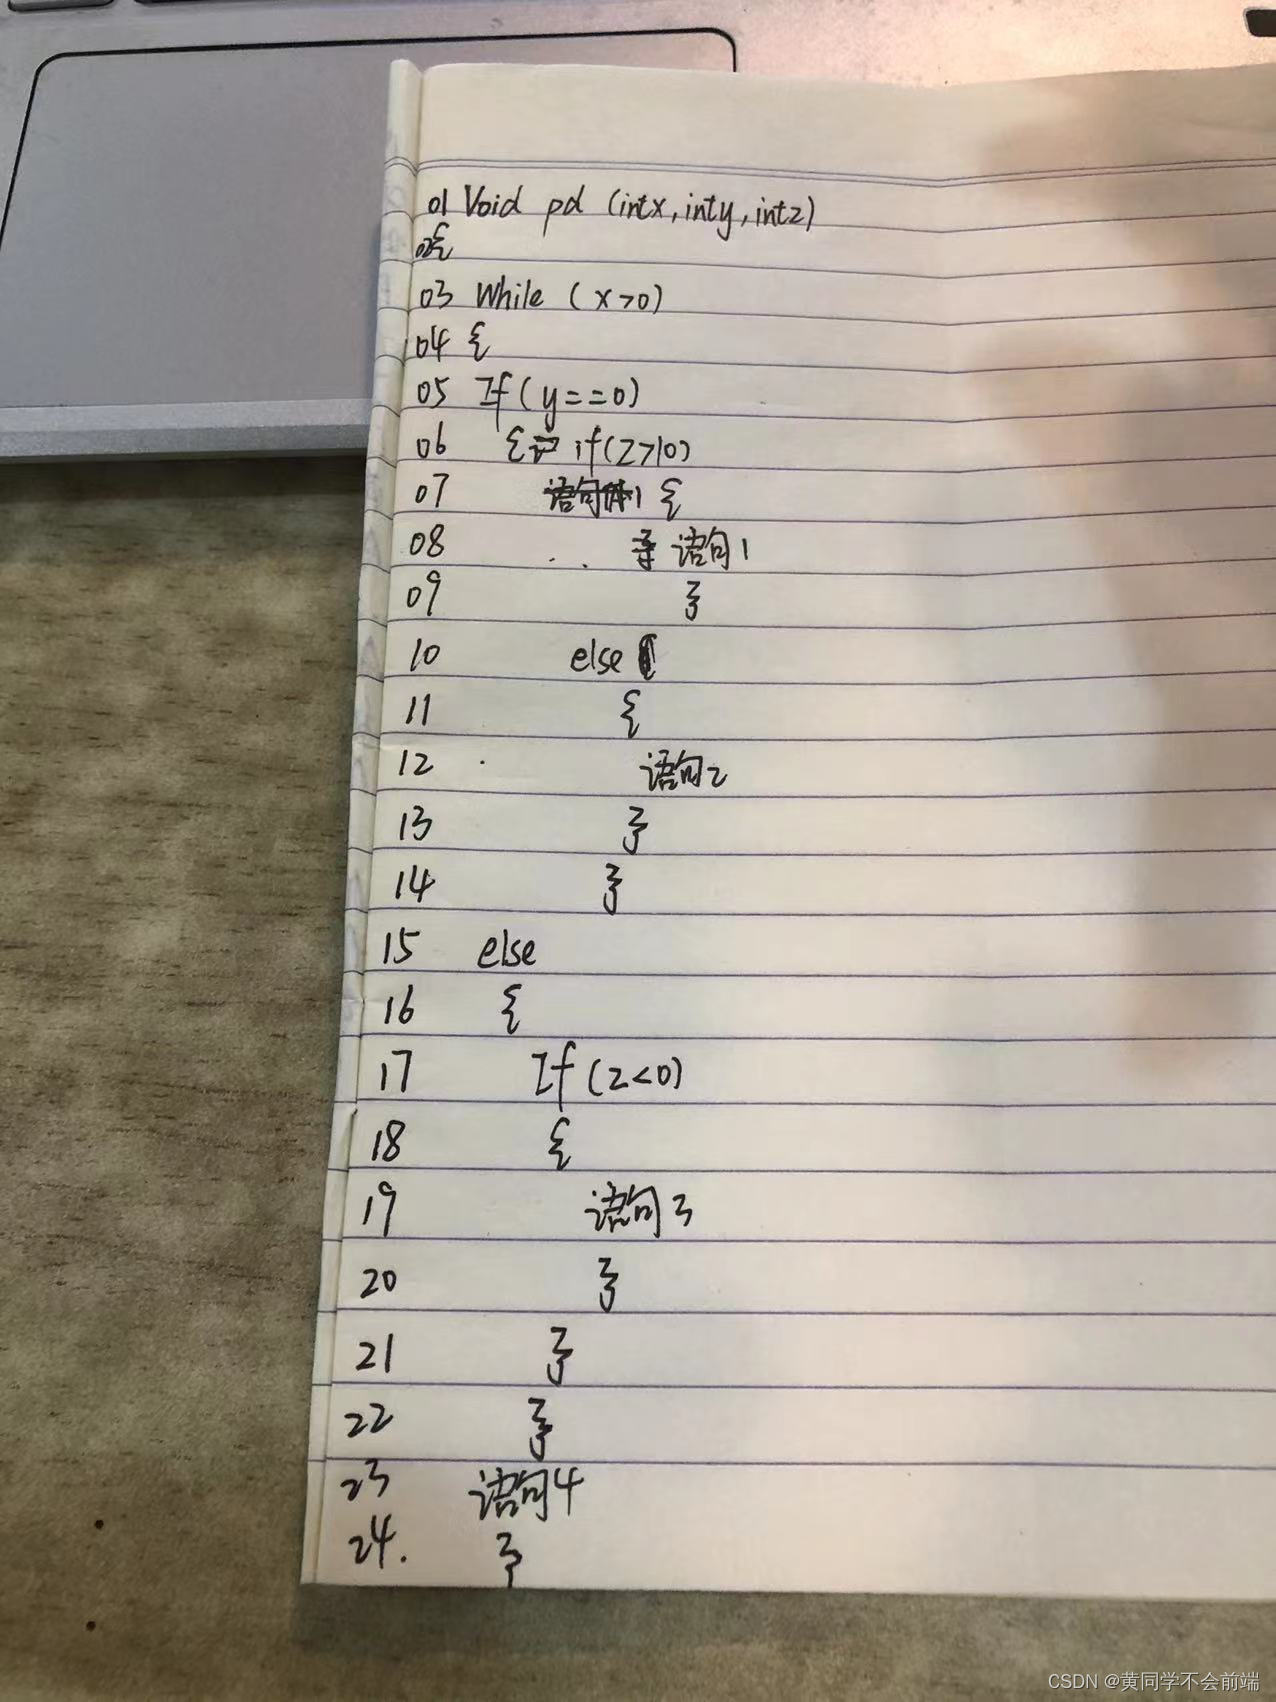 01 Void pd (intx, inty, intz)
02{
03 While (x>0)
04 {
05 If(y==0)
06 { if(z>10)
07 {
08 语句1
09 }
10 else
11 {
12 语句2
13 }
14 }
15 else
16 {
17 If(z<0)
18 {
19 语句3
20 }
21 }
22 }
23 语句4
24. }
CSDN @黄同学不会前端